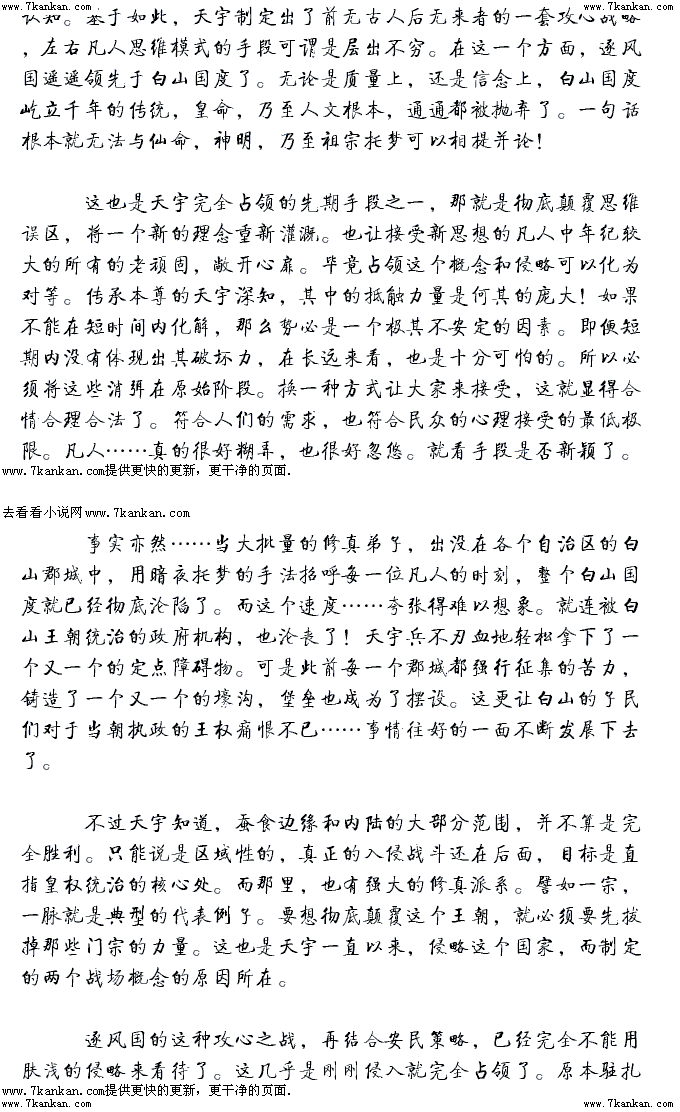 www.7kankan.com www.7kankan.com
认知。基于如此，天宇制定出了前无古人后无来者的一套攻心战略
，左右凡人思维模式的手段可谓是层出不穷。在这一个方面，逐风
国遥遥领先于白山国度了。无论是质量上，还是信念上，白山国度
屹立千年的传统，皇命，乃至人文根本，通通都被抛弃了。一句话
根本就无法与仙命，神明，乃至祖宗托梦可以相提并论！
这也是天宇完全占领的先期手段之一，那就是彻底颠覆思维
误区，将一个新的理念重新灌溉。也让接受新思想的凡人中年纪较
大的所有的老顽固，敞开心扉。毕竟占领这个概念和侵略可以化为
对等。传承本尊的天宇深知，其中的抵触力量是何其的庞大！如果
不能在短时间内化解，那么势必是一个极其不安定的因素。即便短
期内没有体现出其破坏力，在长远来看，也是十分可怕的。所以必
须将这些消弭在原始阶段。换一种方式让大家来接受，这就显得合
情合理合法了。符合人们的需求，也符合民众的心理接受的最低极
限。凡人……真的很好糊弄，也很好忽悠。就看手段是否新颖了。
www.7kankan.com提供更快的更新，更干净的页面.
去看看小说网www.7kankan.com
事实亦然……当大批量的修真弟子，出没在各个自治区的白
山郡城中，用暗夜托梦的手法招呼每一位凡人的时刻，整个白山国
度就已经彻底沦陷了。而这个速度……夸张得难以想象。就连被白
山王朝统治的政府机构，也沦丧了！天宇兵不刃血地轻松拿下了一
个又一个的定点障碍物。可是此前每一个郡城都强行征集的苦力，
铸造了一个又一个的壕沟，堡垒也成为了摆设。这更让白山的子民
们对于当朝执政的王权痛恨不已……事情往好的一面不断发展下去
了。
不过天宇知道，蚕食边缘和内陆的大部分范围，并不算是完
全胜利。只能说是区域性的，真正的入侵战斗还在后面，目标是直
指皇权统治的核心处。而那里，也有强大的修真派系。譬如一宗，
一脉就是典型的代表例子。要想彻底颠覆这个王朝，就必须要先拔
掉那些门宗的力量。这也是天宇一直以来，侵略这个国家，而制定
的两个战场概念的原因所在。
逐风国的这种攻心之战，再结合安民策略，已经完全不能用
肤浅的侵略来看待了。这几乎是刚刚侵入就完全占领了。原本驻扎
www.7kankan.com提供更快的更新，更干净的页面.
www.7kankan.com www.7kankan.com